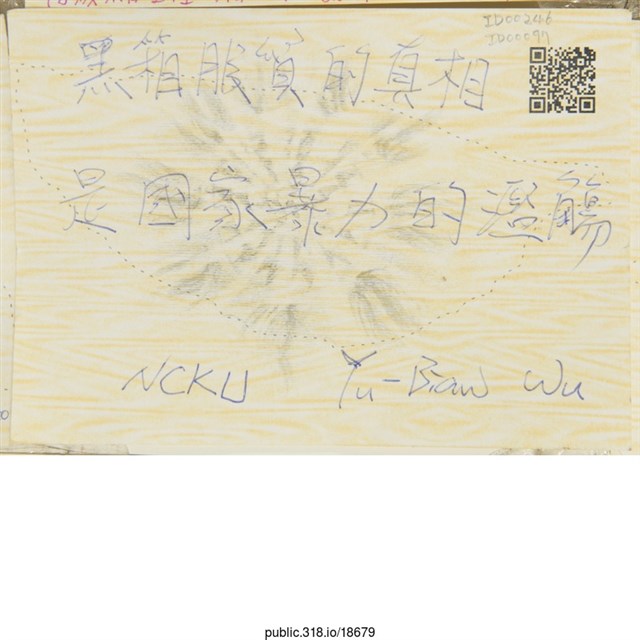 ID00246
ID00097
黑箱服貿的真相
是國家暴力的濫觴
NCKU Yu-Bian Wu
public.318.io/18679